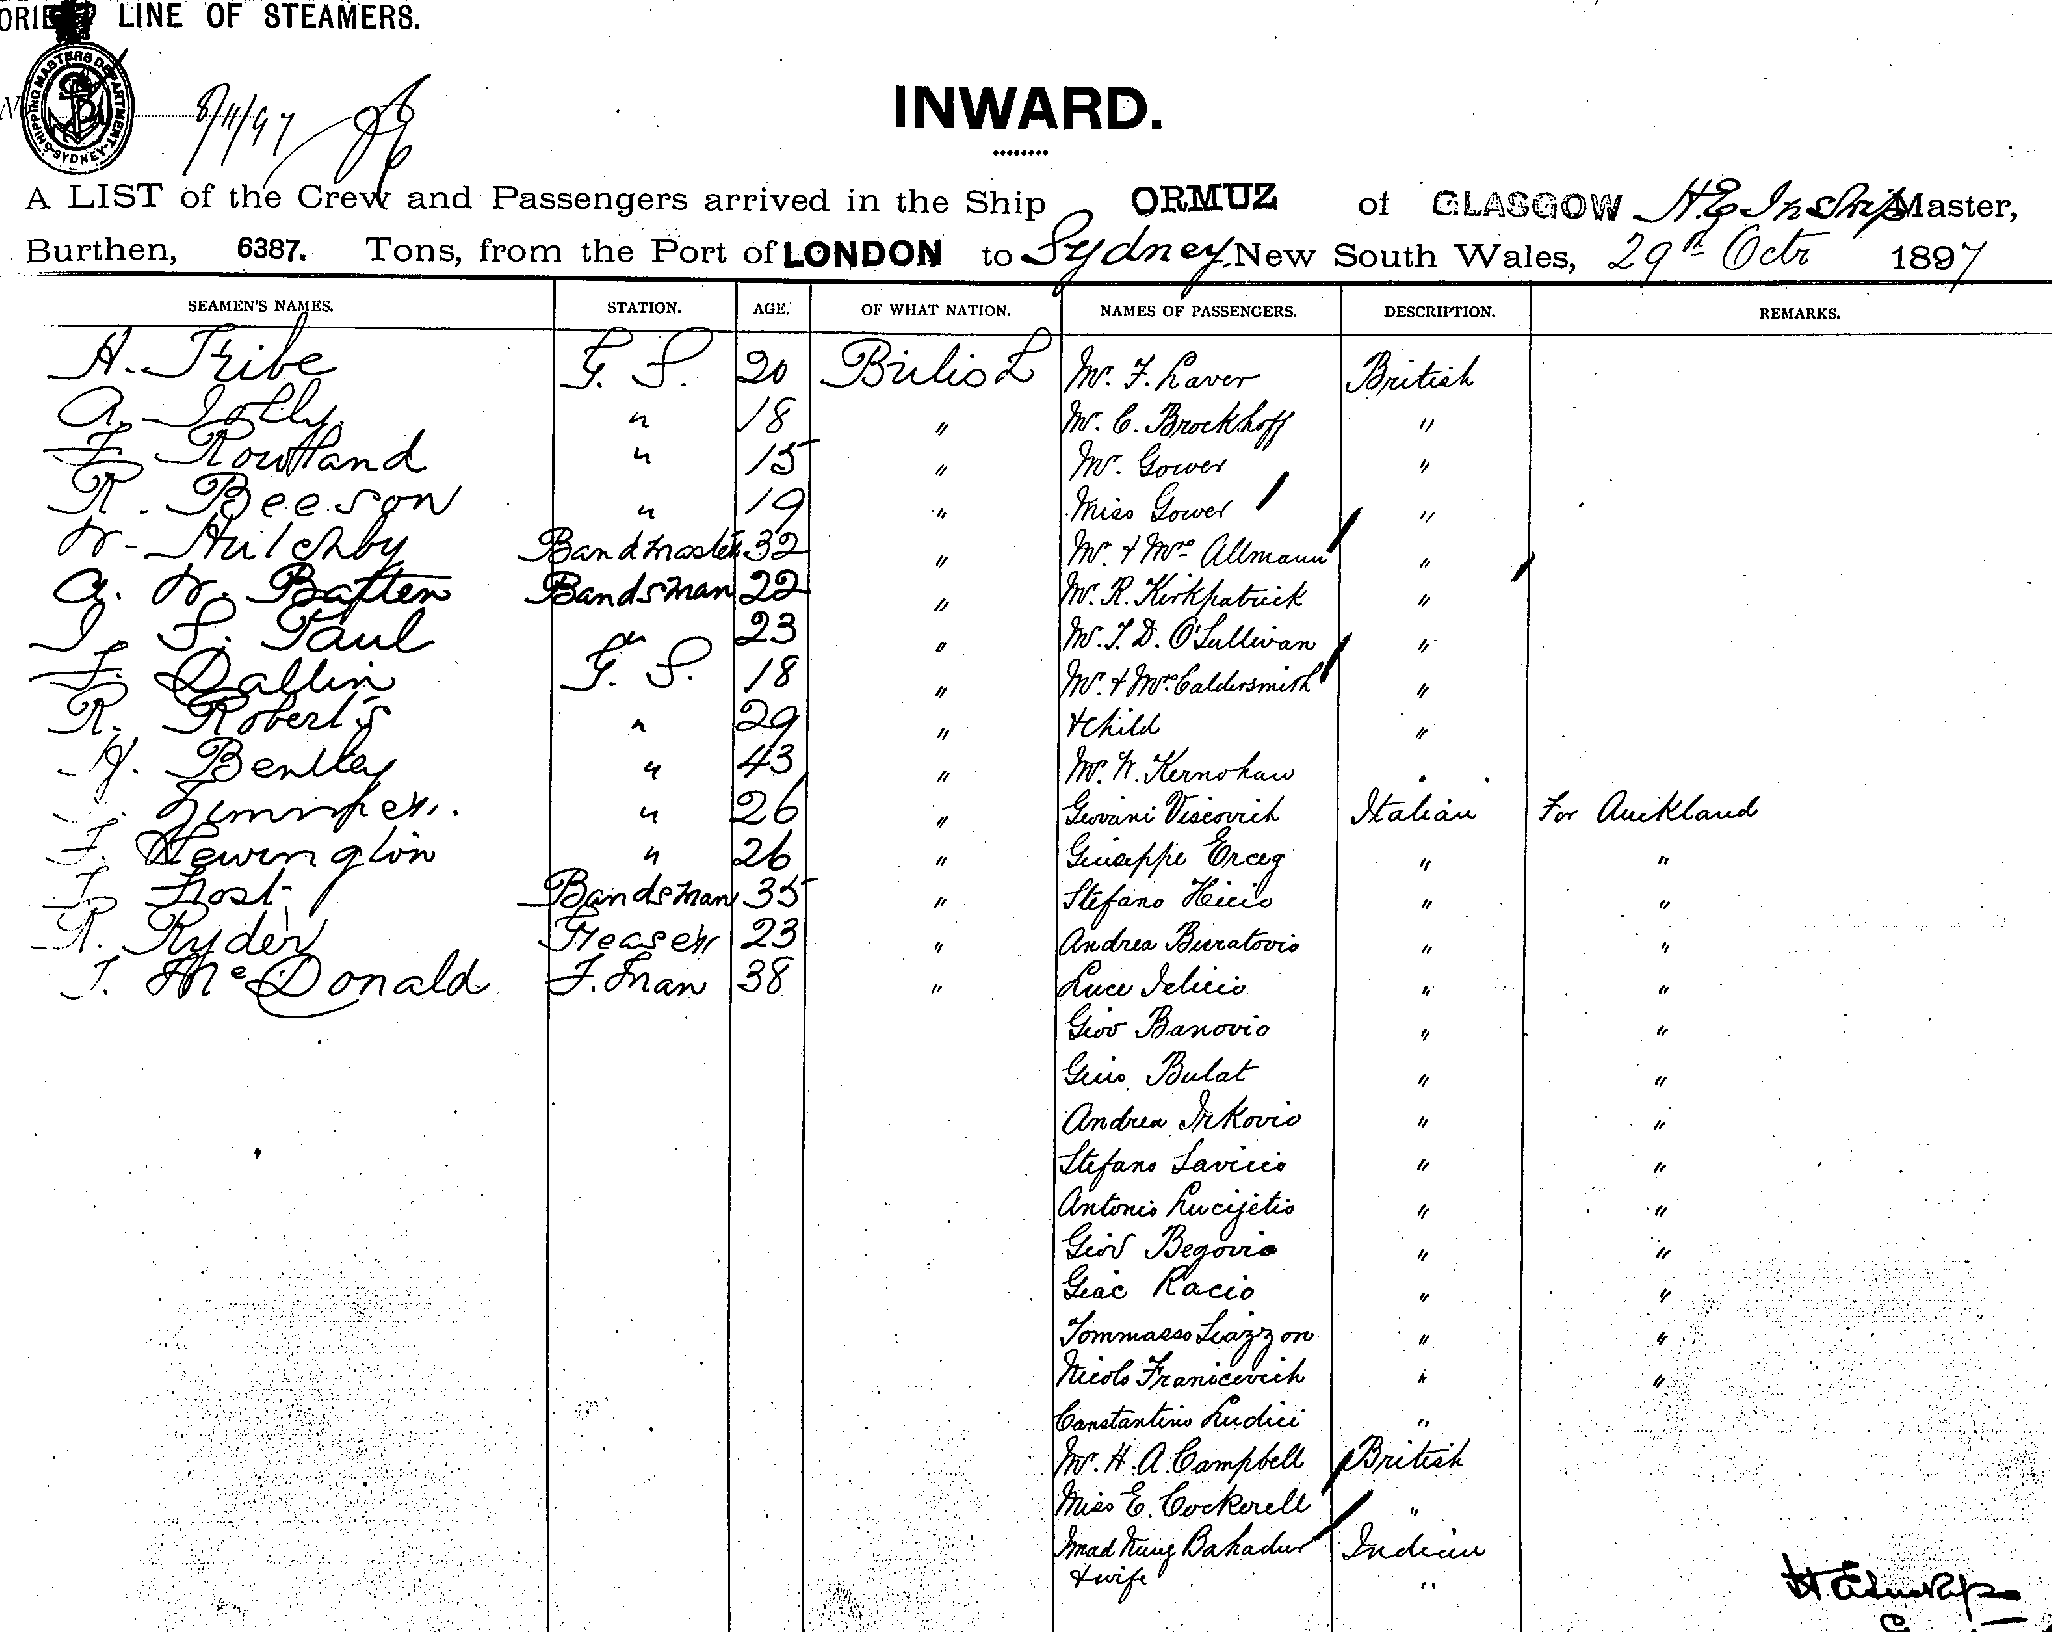 LINE OF STEAMERS.
SHIPPING MASTERS DEPARTMENT SYDNEY
8/11/97
INWARD.
A LIST of the Crew and Passengers arrived in the Ship ORMUZ of GLASGOW H.E. Inskip Master,
Burthen, 6387. Tons, from the Port of LONDON to Sydney, New South Wales, 29th Octr 1897
SEAMEN'S NAMES. STATION. AGE. OF WHAT NATION. NAMES OF PASSENGERS. DESCRIPTION. REMARKS.
H. Tribe G. S. 20 British Mr. F. Laver British
A. Jolly " 18 " Mr. C. Brockhoff "
F. Rowland " 15 " Mr. Gower "
R. Beeson " 19 " Miss Gower "
W. Bandmaster 32 " Mr. & Mrs Allmann "
A. W. Batten Bandsman 22 " Mr. R. Kirkpatrick "
J. S. Paul " 23 " Mr. T. D. O'Sullivan "
F. Dallin G. S. 18 " Mr. & Mrs Caldersmith "
R. Roberts " 29 " & Child "
H. Bentley " 43 " Mr. W. Kernohan "
" 26 " Giovani Viscovich Italian For Auckland
F. Newington " 26 " Giuseppe Erceg " "
Bandsman 35 " Stefano " "
R. Ryder Greaser 23 " Andrea Buratovio " "
J. McDonald F. man 38 " Luce Jelicio " "
Giov Banovio " "
Gius. Bulat " "
Andrea " "
Stefano " "
Antonio Lucijetio " "
Giov Begovio " "
Giac Racio " "
Tommasso " "
Nicolo Franicevich " "
Constantino Ludici "
Mr. H. A. Campbell British
Miss E. Cockerell "
Bahadur Indian
& wife "